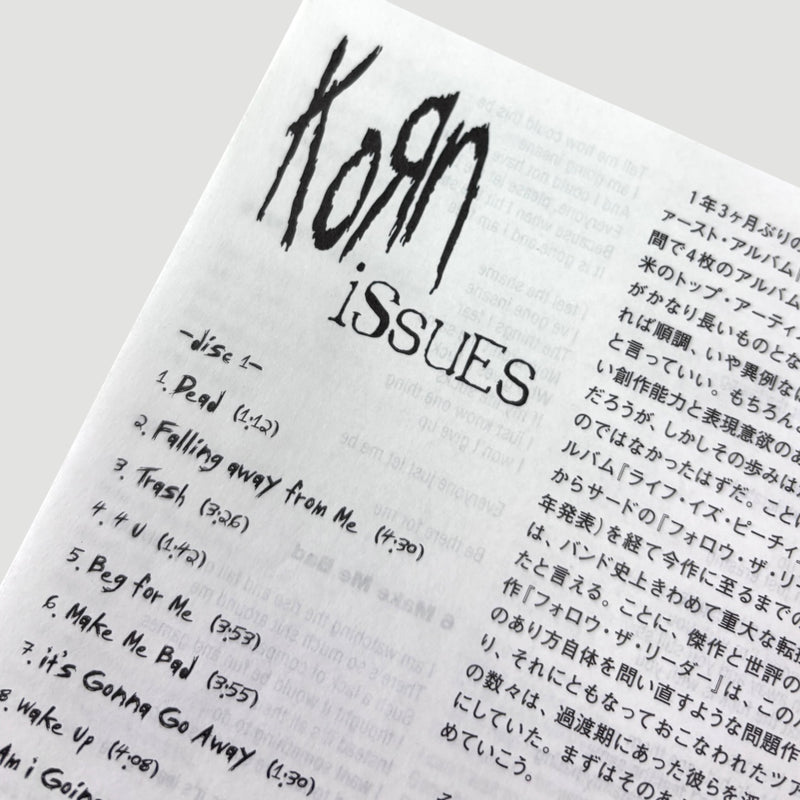 KoЯn
issues
-disc 1-
1. Dead (1:12)
2. Falling away from Me (4:30)
3. Trash (3:26)
4. 4 U (1:42)
5. Beg for Me (3:53)
6. Make Me Bad (3:55)
7. it's Gonna Go Away (1:30)
8. Wake Up (4:08)
Am i Goin
1年3ヶ月ぶりの
ァースト・アルバム『
間で4枚のアルバム
米のトップ・アーティ
がかなり長いものとな
れば順調、いや異例なほ
と言っていい。もちろん
い創作能力と表現意欲のあ
だろうが、しかしその歩みは
のではなかったはずだ。ことに
ルバム『ライフ・イズ・ピーチィ
からサードの『フォロウ・ザ・リ
年発表)を経て今作に至るまでの
は、バンド史上きわめて重大な転
たと言える。ことに、傑作と世評の
作『フォロウ・ザ・リーダー』は、この
のあり方自体を問い直すような問題作
り、それにともなっておこなわれたツア
の数々は、過渡期にあった彼らを
にしていた。まずはそのあ
めていこう。